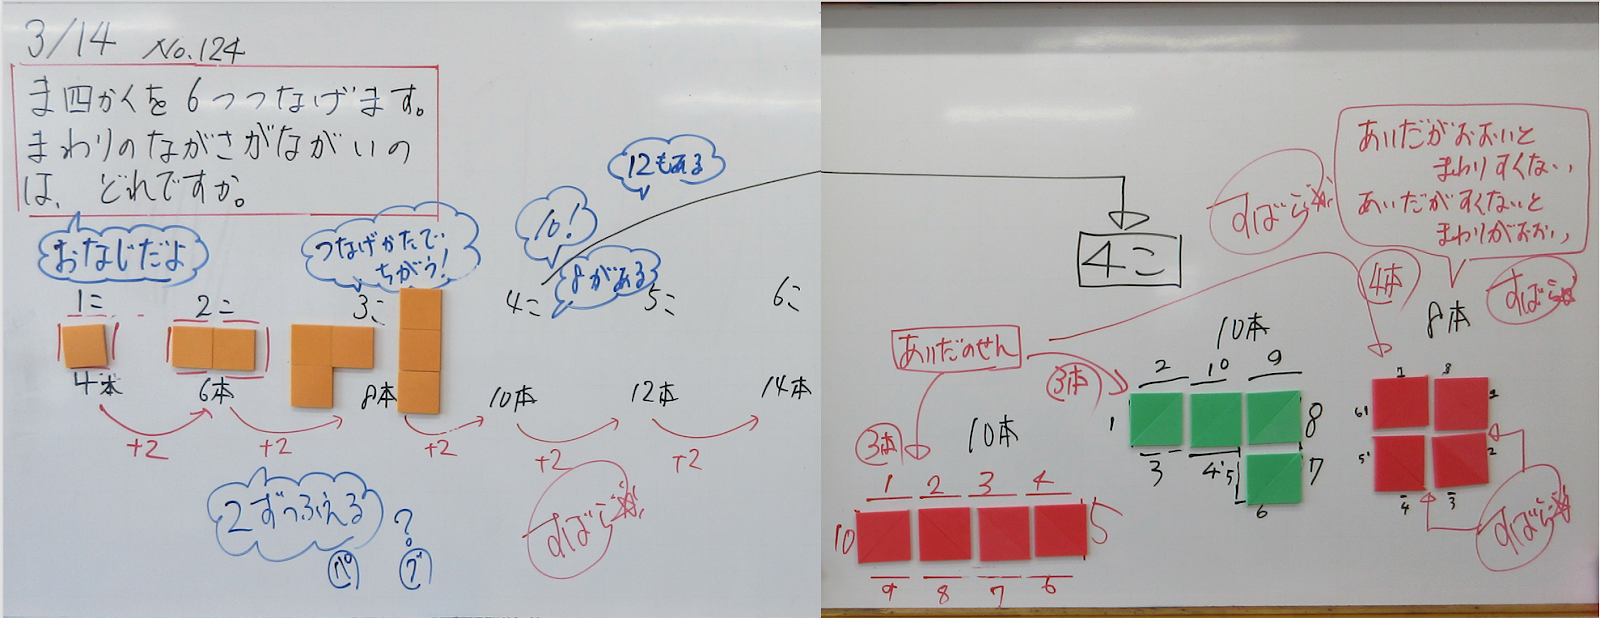 3/14 No.124
ま四かくを6つつなげます。
まわりのながさがながいの
は、どれですか。
おなじだよ
つなげかたで
ちがう!
10!
12もある
8がある
1こ
2こ
3こ
4こ
5こ
6こ
4本
6本
8本
10本
12本
14本
+2
+2
+2
+2
+2
2ずつふえる
?
すばらしい
4こ
あいだのせん
3本
3本
4本
すばらしい
あいだがおおいと
まわりすくない
あいだがすくないと
まわりがおおい
すばらしい
10本
1 2 3 4
10
5
9 8 7 6
10本
2 10 9
1
8
3 4 5 7
6
8本
1 8
6
5
2
4 3
すばらしい